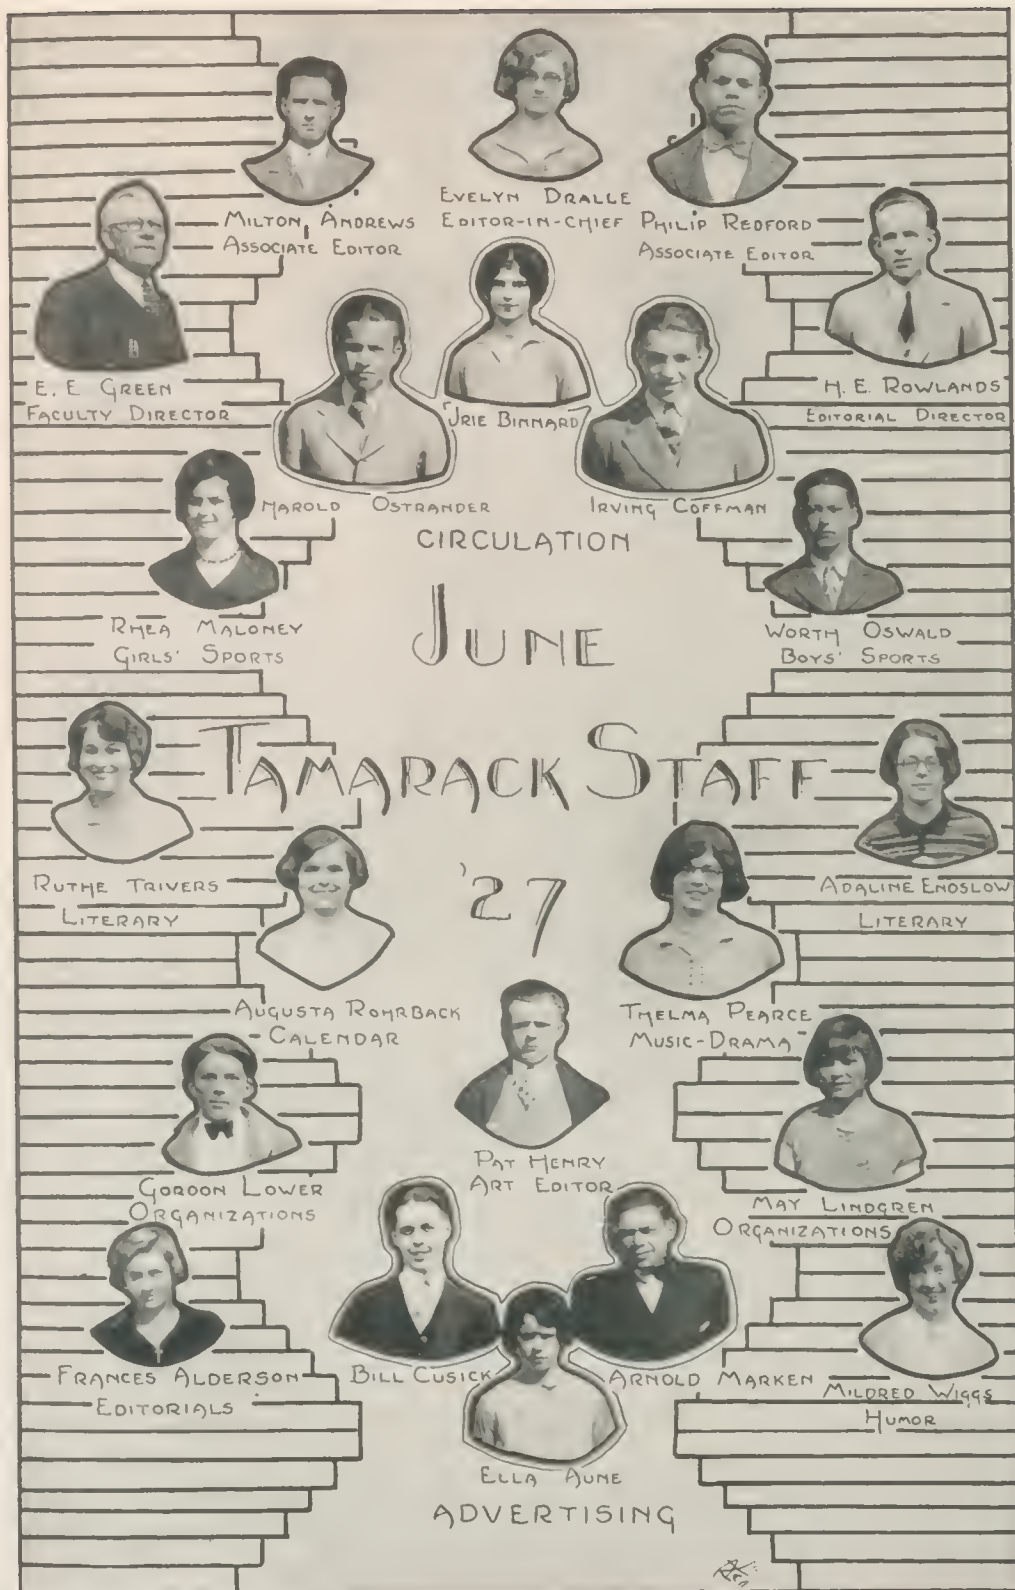 EVELYN DRALLE
EDITOR-IN-CHIEF
MILTON ANDREWS
ASSOCIATE EDITOR
PHILIP REDFORD
ASSOCIATE EDITOR
E. E GREEN
FACULTY DIRECTOR
H. E. ROWLANDS
EDITORIAL DIRECTOR
URIE BINNARD
HAROLD OSTRANDER
IRVING COFFMAN
CIRCULATION
RHEA MALONEY
GIRLS' SPORTS
WORTH OSWALD
BOYS' SPORTS
JUNE
TAMARACK STAFF
'27
RUTHE TRIVERS
LITERARY
ADALINE ENOSLOW
LITERARY
AUGUSTA ROHRBACK
CALENDAR
THELMA PEARCE
MUSIC-DRAMA
PAT HENRY
ART EDITOR
GORDON LOWER
ORGANIZATIONS
MAY LINDGREN
ORGANIZATIONS
FRANCES ALDERSON
EDITORIALS
BILL CUSICK
ARNOLD MARKEN
MILDRED WIGGS
HUMOR
ELLA AUNE
ADVERTISING